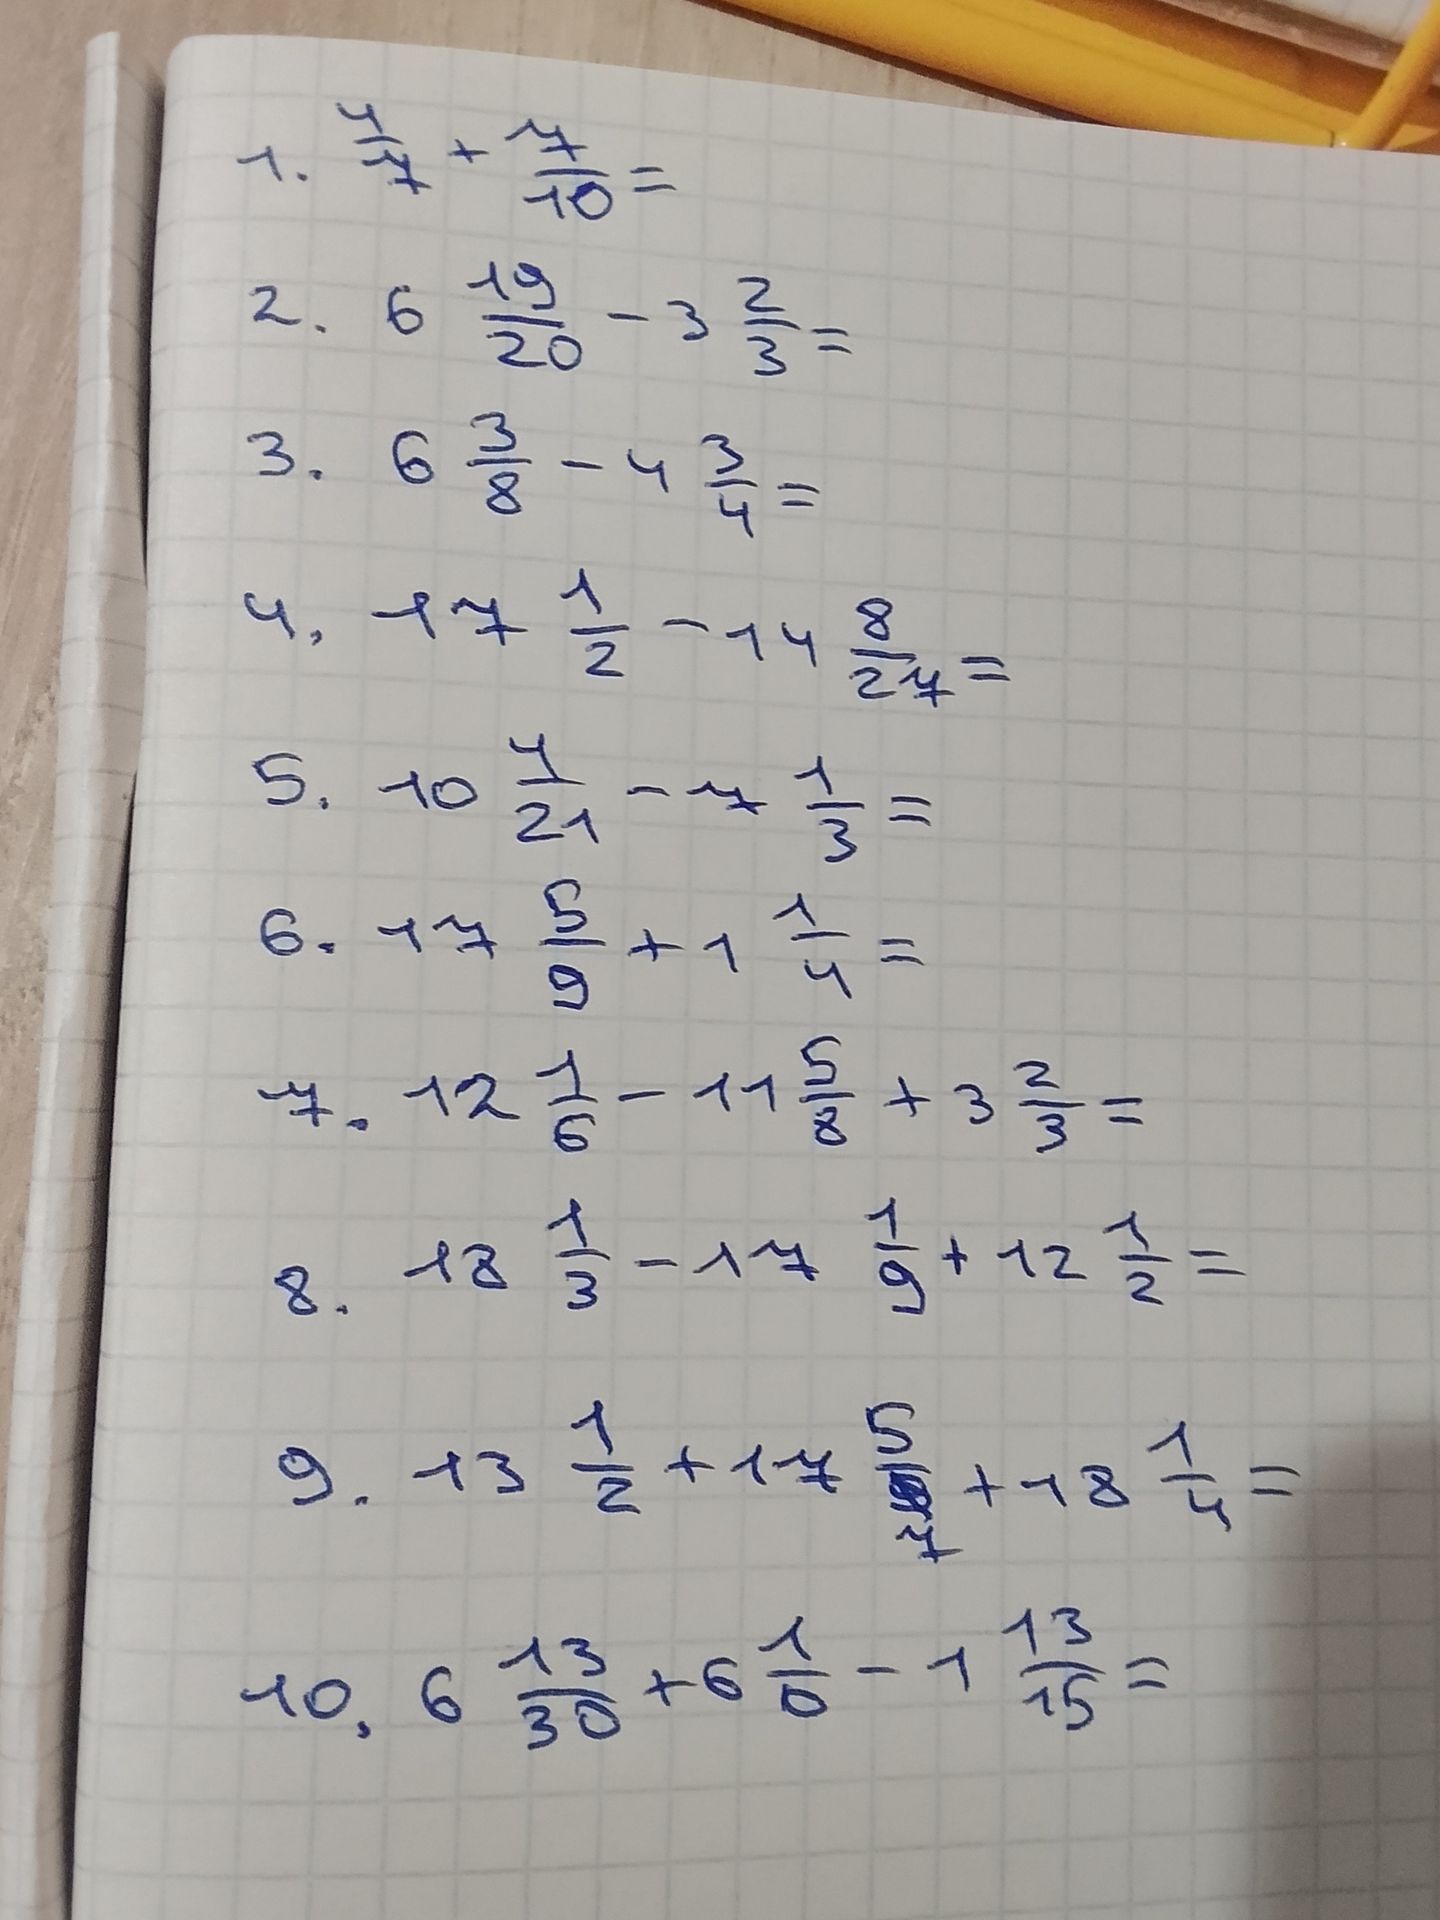 1. 4/7 + 7/10 =
2. 6 19/20 - 3 2/3 =
3. 6 3/8 - 4 3/4 =
4. 17 1/2 - 14 8/27 =
5. 10 4/21 - 7 1/3 =
6. 17 5/9 + 1 1/4 =
7. 12 1/6 - 11 5/8 + 3 2/3 =
8. 18 1/3 - 17 1/9 + 12 1/2 =
9. 13 1/2 + 17 5/7 + 18 1/4 =
10. 6 13/30 + 6 1/0 - 1 13/15 =